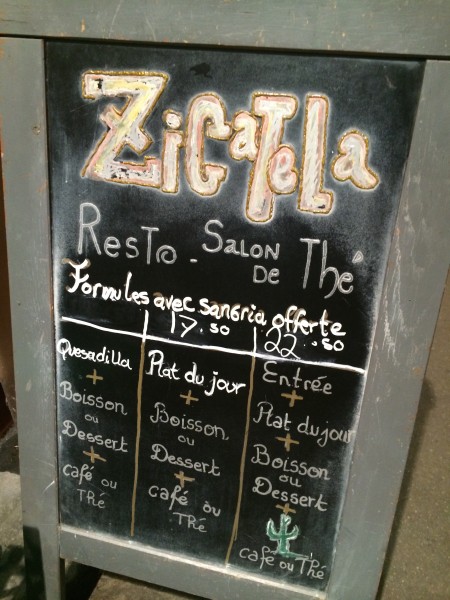 Zicatela
Resto - Salon de Thé
Formules avec sangria offerte
17.50
22.50
Quesadilla
+
Boisson
ou
Dessert
+
café ou
Thé
Plat du jour
+
Boisson
ou
Dessert
+
café ou
Thé
Entrée
+
Plat du jour
+
Boisson
ou
Dessert
+
café ou Thé